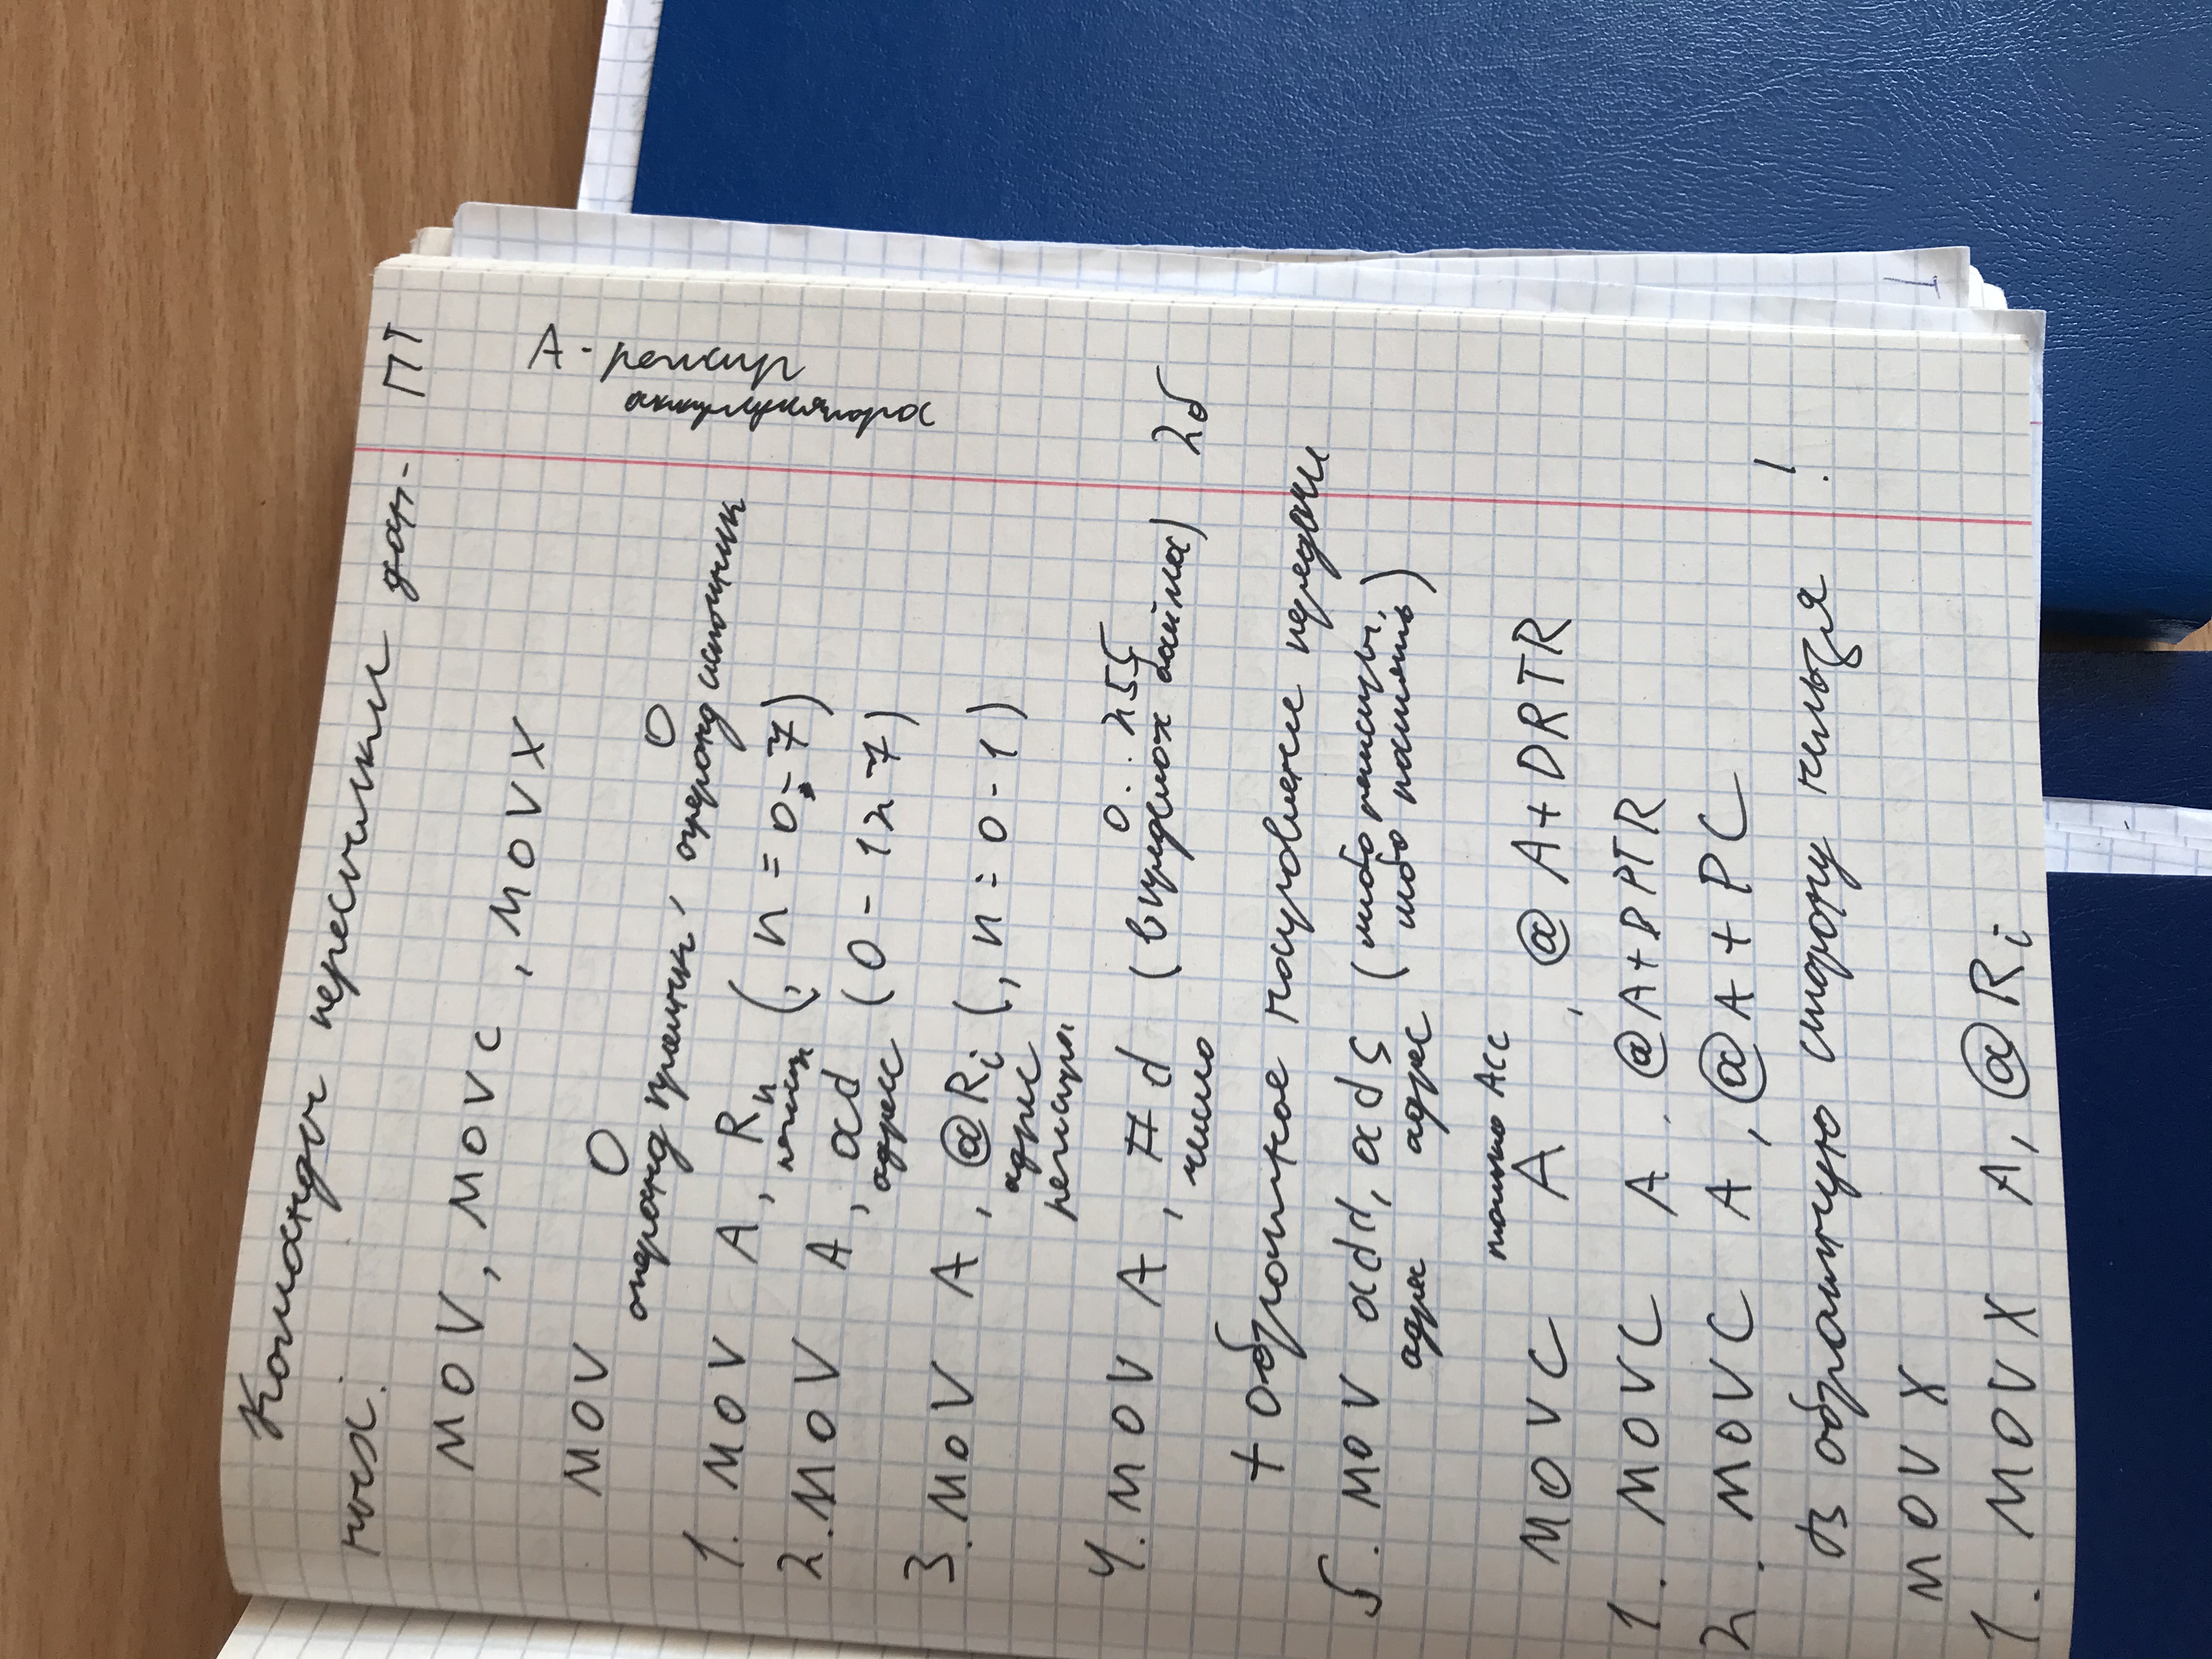 Команды пересылки дан-
ПТ
ных:
MOV, MOVC, MOVX
MOV O O
операнд приемник, операнд источник
1. MOV A, Rn (, n = 0-7)
регистр
2. MOV A, ad (0 - 127)
адрес
3. MOV A, @Ri (, n = 0-1)
адрес
регистра
0..255
4. MOV A, #d (в пределах байта) 2б
число
+ обратное направление передачи
5. MOV add, ads (либо регистры,
либо память)
адрес адрес
только ACC
MOVC A , @A+DRTR
1. MOVC A, @A+DPTR
2. MOVC A, @A+PC
В обратную сторону нельзя !
MOVX
1. MOVX A, @Ri
A - регистр
аккумулятора